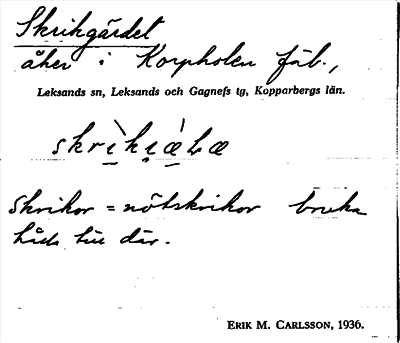 Skrikgärdet
åker i Korpholen fäb.,
Leksands sn, Leksands och Gagnefs tg, Kopparbergs län.
Skrikor = nötskrikor bruka
hålla till där.
ERIK M. CARLSSON, 1936.